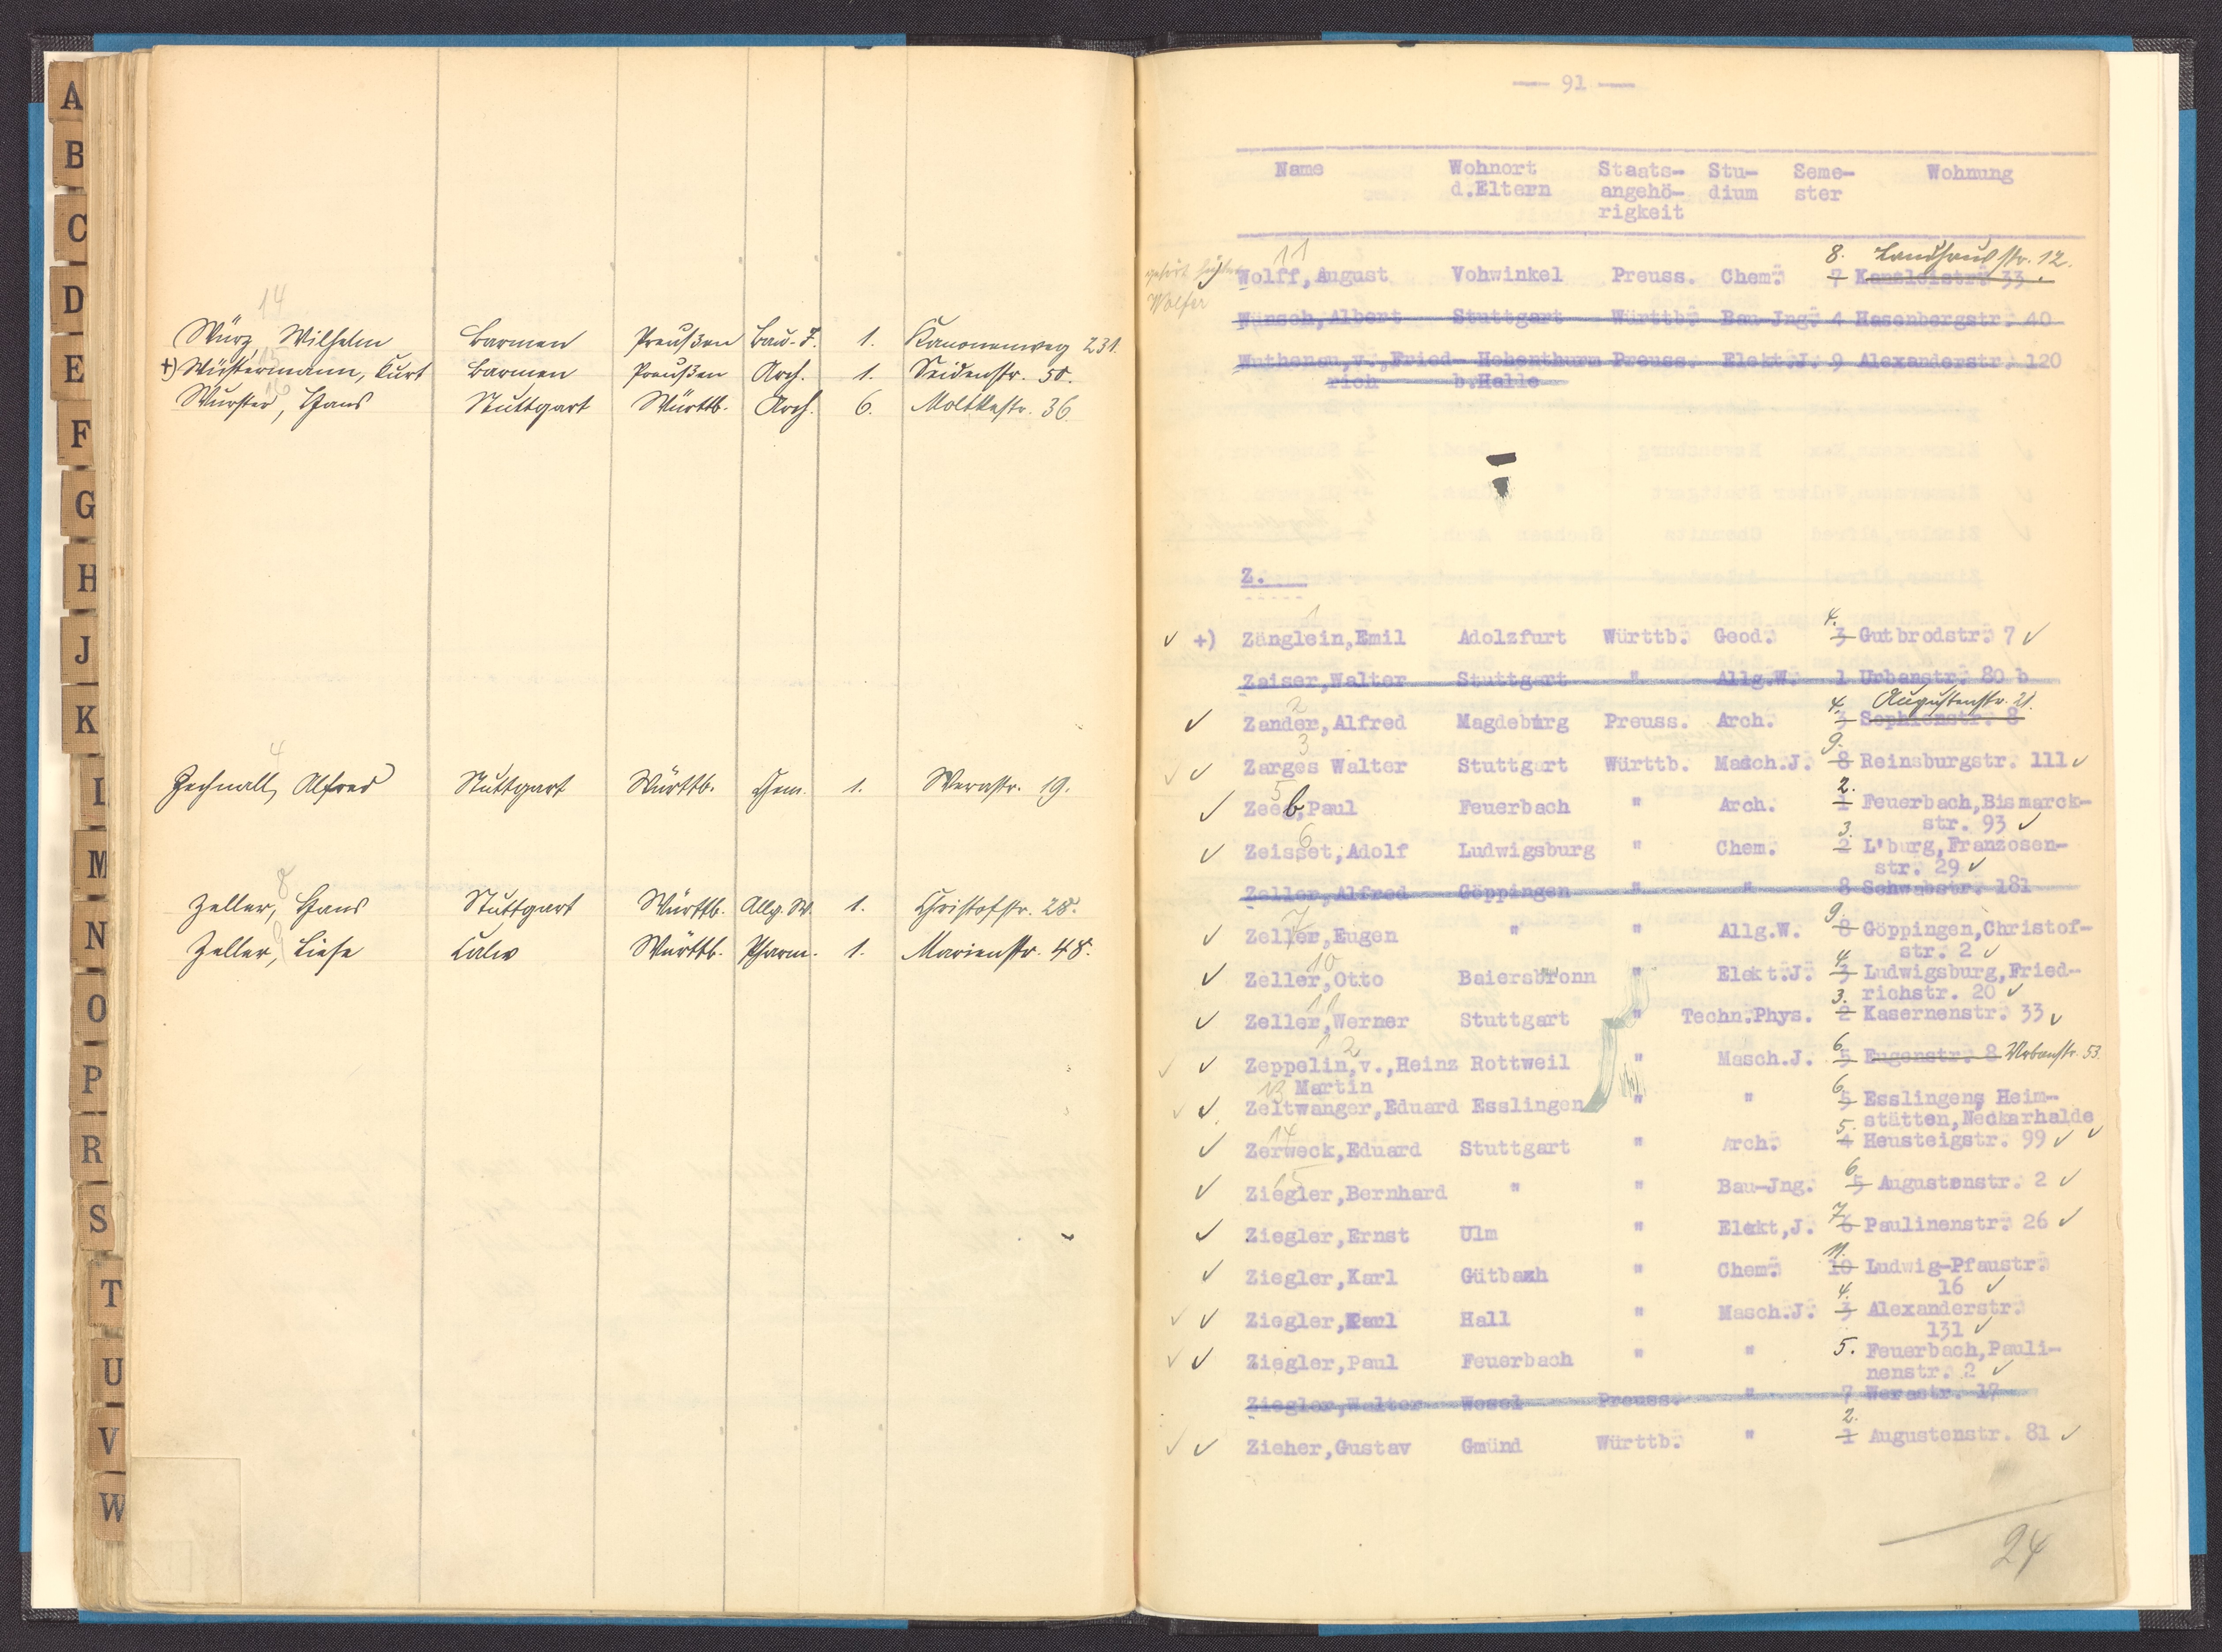 A
B
C
D
E
F
G
H
J
K
L
M
N
O
P
R
S
T
U
V
W
14
Würz, Wilhelm Barmen Preußen Bau-J. 1. Kanonenweg 231.
15
+) Wüstermann, Kurt Barmen Preußen Arch. 1. Seidenstr. 50.
16
Wurster, Hans Stuttgart Württb. Arch. 6. Moltkestr. 36.
4
Zechnall, Alfred Stuttgart Württb. Chem. 1. Werastr. 19.
8
Zeller, Hans Stuttgart Württb. Allg. W. 1. Christofstr. 28.
9
Zeller, Liese Calw Württb. Pharm. 1. Marienstr. 48.
— 91 —
Name Wohnort Staats- Stu- Seme- Wohnung
d.Eltern angehö- dium ster
rigkeit
11 8. Landhausstr. 12.
Wolff,August Vohwinkel Preuss. Chem. 7 Kanzleistr. 33
Wolfer
Wünsch,Albert Stuttgart Württb. Bau-Jng. 4 Hasenbergstr. 40
Wuthenau,v.,Fried- Hohenthurm Preuss. Elekt.J. 9 Alexanderstr. 120
rich b.Halle
Z.
1 4.
+) Zänglein,Emil Adolzfurt Württb. Geod. 3 Gutbrodstr. 7
Zaiser,Walter Stuttgart " Allg.W. 1 Urbanstr. 80 b
2 4. Augustenstr. 21.
Zander,Alfred Magdeburg Preuss. Arch. 3 Sophienstr. 8
3 9.
Zarges Walter Stuttgart Württb. Masch.J. 8 Reinsburgstr. 111
5 2.
Zeeb,Paul Feuerbach " Arch. 1 Feuerbach,Bismarck-
str. 93
6 3.
Zeisset,Adolf Ludwigsburg " Chem. 2 L'burg,Franzosen-
str. 29
Zeller,Alfred Göppingen " " 8 Schwabstr. 181
7 9.
Zeller,Eugen " " Allg.W. 8 Göppingen,Christof-
str. 2
10 4.
Zeller,Otto Baiersbronn " Elekt.J. 3 Ludwigsburg,Fried-
richstr. 20
11 3.
Zeller,Werner Stuttgart " Techn.Phys. 2 Kasernenstr. 33
12 6.
Zeppelin,v.,Heinz Rottweil " Masch.J. 5 Eugenstr. 8 Urbanstr. 53.
Martin
13 6.
Zeltwanger,Eduard Esslingen " " 5 Esslingen, Heim-
stätten,Neckarhalde
14 5.
Zerweck,Eduard Stuttgart " Arch. 4 Heusteigstr. 99
15 6.
Ziegler,Bernhard " " Bau-Jng. 5 Augustenstr. 2
7.
Ziegler,Ernst Ulm " Elekt,J. 6 Paulinenstr. 26
11.
Ziegler,Karl Gütbach " Chem. 10 Ludwig-Pfaustr.
16
4.
Ziegler,Karl Hall " Masch.J. 3 Alexanderstr.
131
Ziegler,Paul Feuerbach " " 5. Feuerbach,Pauli-
nenstr. 2
Ziegler,Walter Wesel Preuss. " 7 Werastr. 17
2.
Zieher,Gustav Gmünd Württb. " 1 Augustenstr. 81
24